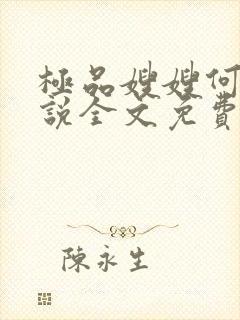 極品嫂嫂何
說全文免費
陳永生